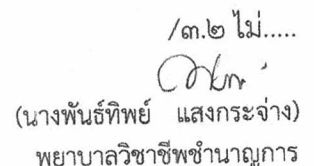 /๓.๒ ไม่.....
(นางพันธ์ทิพย์ แสงกระจ่าง)
พยาบาลวิชาชีพชำนาญการ